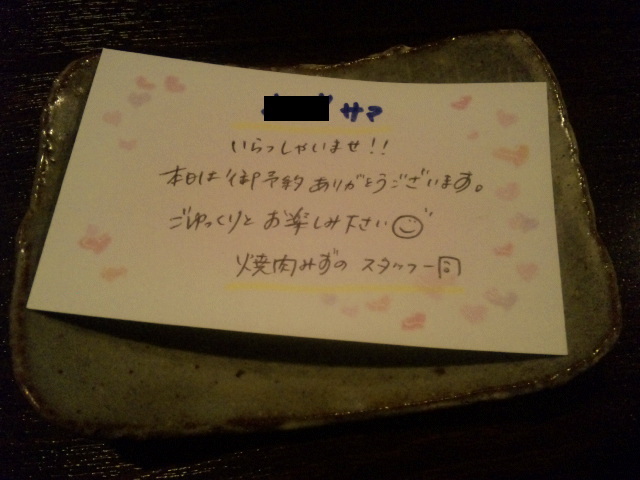 サマ
いらっしゃいませ!!
本日は御予約ありがとうございます。
ごゆっくりとお楽しみ下さい
焼肉みずの スタッフ一同